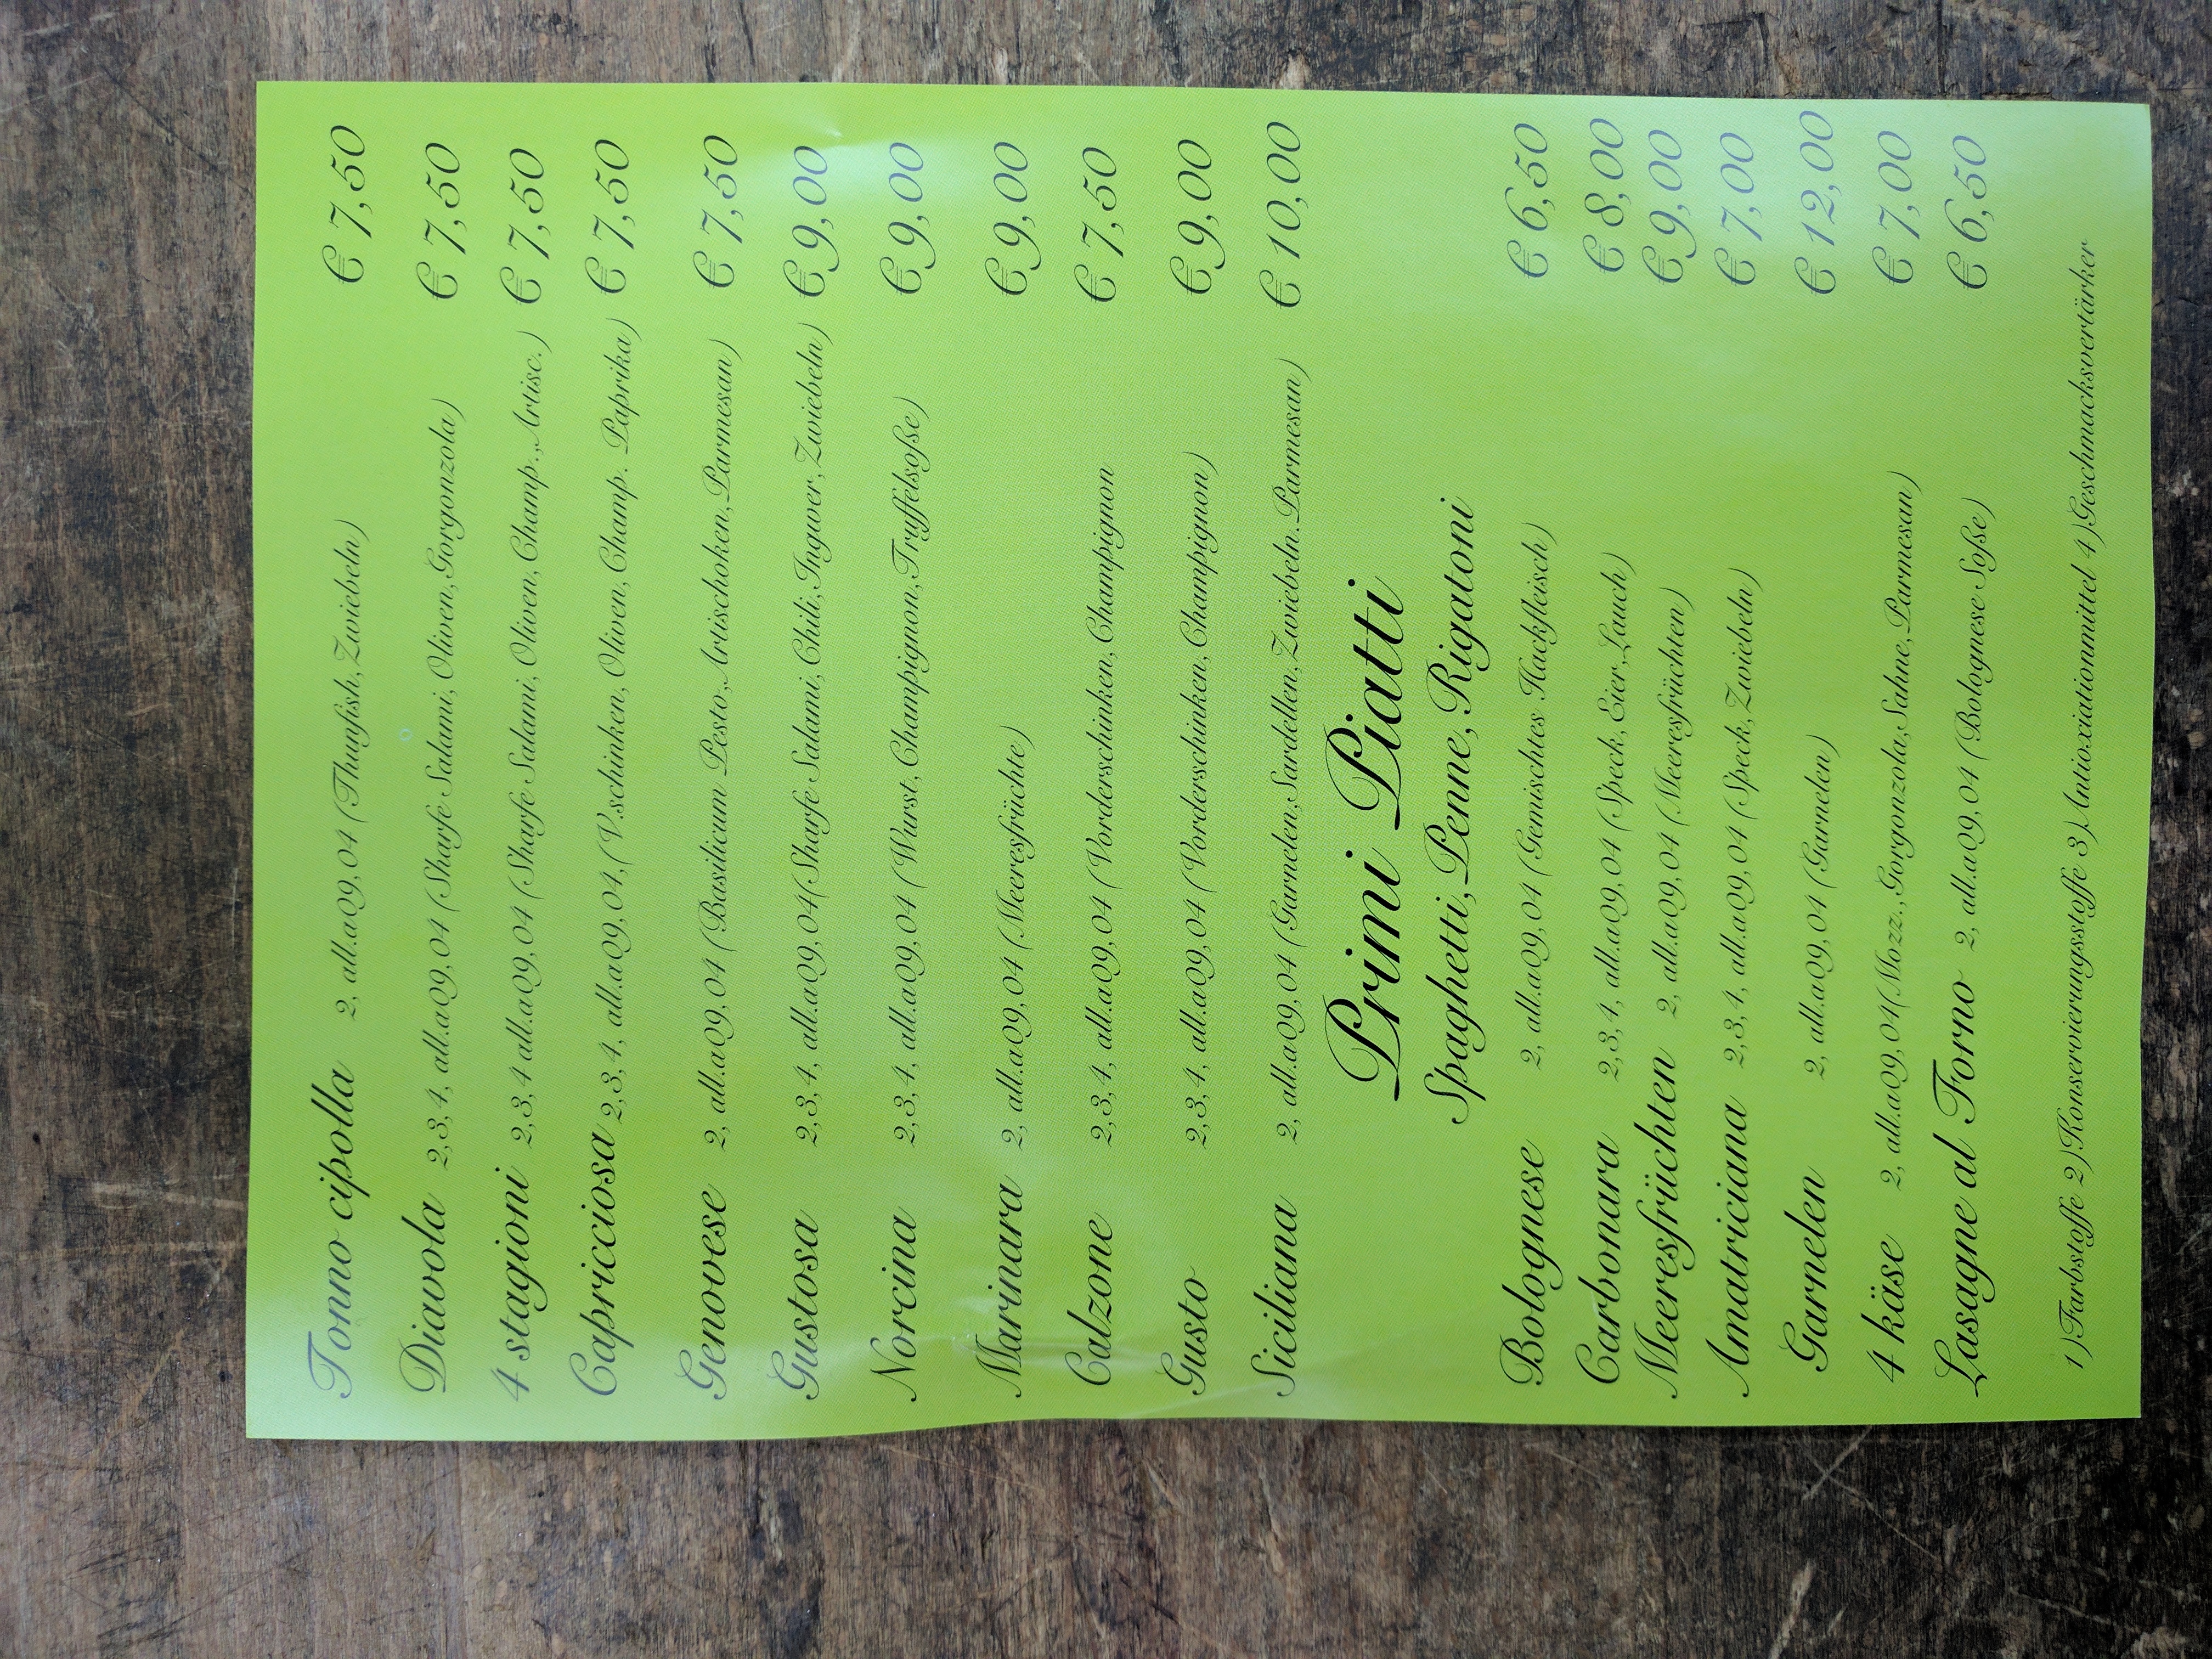 Tonno cipolla 2, all.a09,04 (Thunfish, Zwiebeln) € 7,50
Diavola 2,3,4, all.a09,04 (Sharfe Salami, Oliven,Gorgonzola) € 7,50
4 stagioni 2,3,4 all.a09,04 (Sharfe Salami, Oliven, Champ.,Artisc.) € 7,50
Capricciosa 2,3,4, all.a09,04,(V.schinken, Oliven, Champ. Paprika) € 7,50
Genovese 2, all.a09,04 (Basilicum Pesto,Artischoken,Parmesan) € 7,50
Gustosa 2,3,4, all.a09,04(Sharfe Salami, Chili, Ingwer, Zwiebeln) € 9,00
Norcina 2,3,4, all.a09,04 (Wurst, Champignon,Truffelsoße) € 9,00
Marinara 2, all.a09,04 (Meeresfrüchte) € 9,00
Calzone 2,3,4, all.a09,04 (Vorderschinken, Champignon € 7,50
Gusto 2,3,4, all.a09,04 (Vorderschinken, Champignon) € 9,00
Siciliana 2, all.a09,04 (Garnelen,Sardellen,Zwiebeln.Parmesan) € 10,00
Primi Piatti
Spaghetti, Penne, Rigatoni
Bolognese 2, all.a09,04 (Gemischtes Hackfleisch) € 6,50
Carbonara 2,3,4, all.a09,04 (Speck, Eier,Lauch) € 8,00
Meeresfrüchten 2, all.a09,04 (Meeresfrüchten) € 9,00
Amatriciana 2,3,4, all.a09,04 (Speck, Zwiebeln) € 7,00
Garnelen 2, all.a09,04 (Garnelen) € 12,00
4 käse 2, all.a09,04(Mozz.,Gorgonzola,Sahne,Parmesan) € 7,00
Lasagne al Forno 2, all.a09,04 (Bolognese Soße) € 6,50
1)Farbstoffe 2)Konservierungsstoffe 3)Antioxiationmittel 4)Geschmacksvertärker